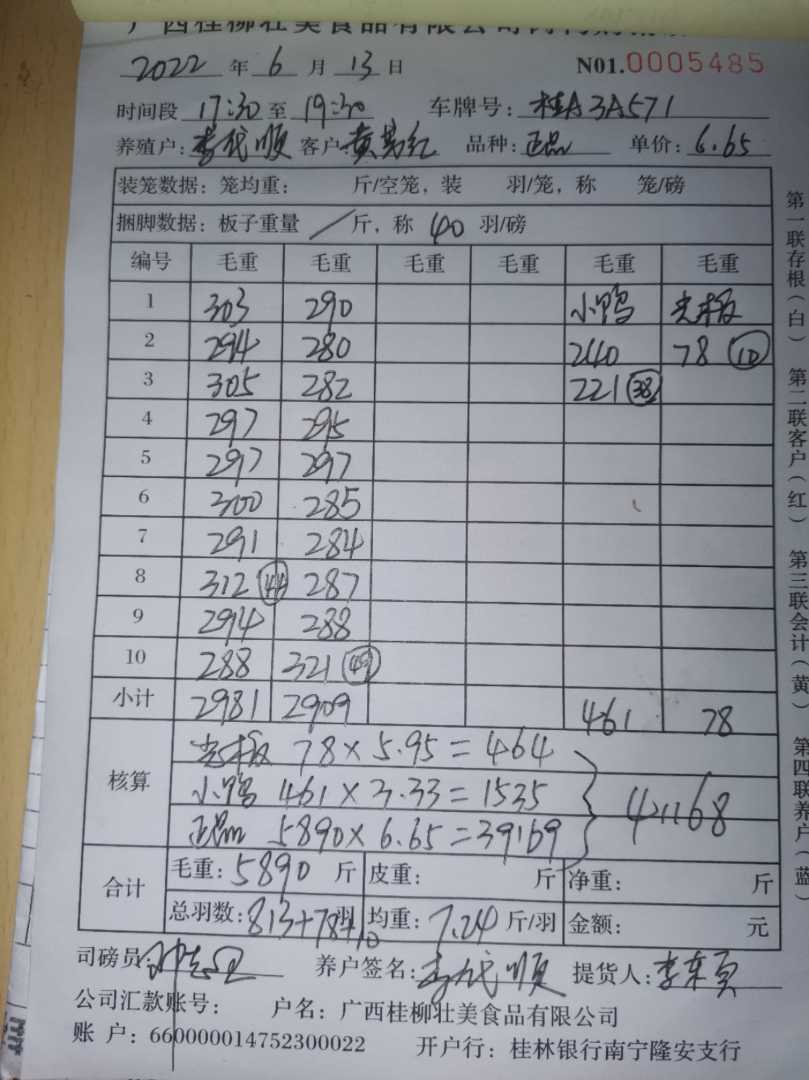 广西桂柳壮美食品有限公司
2022 年 6 月 13 日 N01.0005485
时间段 17:30 至 19:30 车牌号: 桂A3A571
养殖户: 李代顺 客户: 黄 红 品种: 正品 单价: 6.65
装笼数据: 笼均重: 斤/空笼, 装 羽/笼, 称 笼/磅
捆脚数据: 板子重量 / 斤, 称 40 羽/磅
编号 毛重 毛重 毛重 毛重 毛重 毛重
1 303 290 小鸭 光板
2 294 280 240 78 10
3 305 282 221 38
4 297 295
5 297 297
6 300 285
7 291 284
8 312 44 287
9 294 288
10 288 321 49
小计 2981 2909 461 78
核算 光板 78×5.95=464
小鸭 461×3.33=1535
正品 5890×6.65=39169
42168
合计 毛重: 5890 斤 皮重: 斤 净重: 斤
总羽数: 813+78+10 羽 均重: 7.24 斤/羽 金额: 元
司磅员: 养户签名: 李代顺 提货人: 李
公司汇款账号: 户名: 广西桂柳壮美食品有限公司
账 户: 660000014752300022 开户行: 桂林银行南宁隆安支行
第一联存根(白) 第二联客户(红) 第三联会计(黄) 第四联养户(蓝)